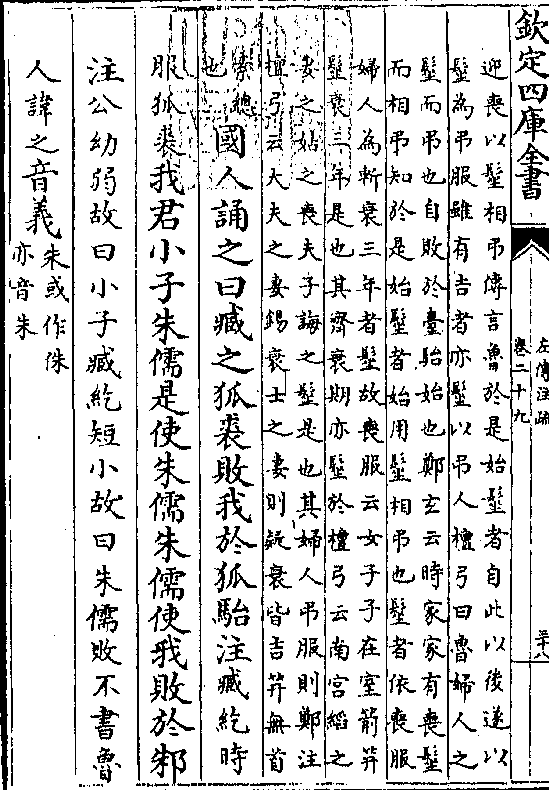 欽定四庫全書
左傳注疏
卷二十九
三十八
迎喪以髽相弔傳言魯於是始髽者自此以後遂以
髽為弔服雖有吉者亦髽以弔人檀弓曰魯婦人之
髽而弔也自敗於臺駘始也鄭玄云時家家有喪髽
而相弔知於是始髽者始用髽相弔也髽者依喪服
婦人為斬衰三年者髽故喪服云女子子在室箭笄
髽衰三年是也其齊衰期亦髽於檀弓云南宮縚之
妻之姑之喪夫子誨之髽是也其婦人弔服則鄭注
檀弓云大夫之妻錫衰士之妻則疑衰皆吉笄無首
素總
也
國人誦之曰臧之狐裘敗我於狐駘注臧紇時
服狐裘我君小子朱儒是使朱儒朱儒使我敗於邾
注公幼弱故曰小子臧紇短小故曰朱儒敗不書魯
人諱之音義
朱或作侏
亦音朱